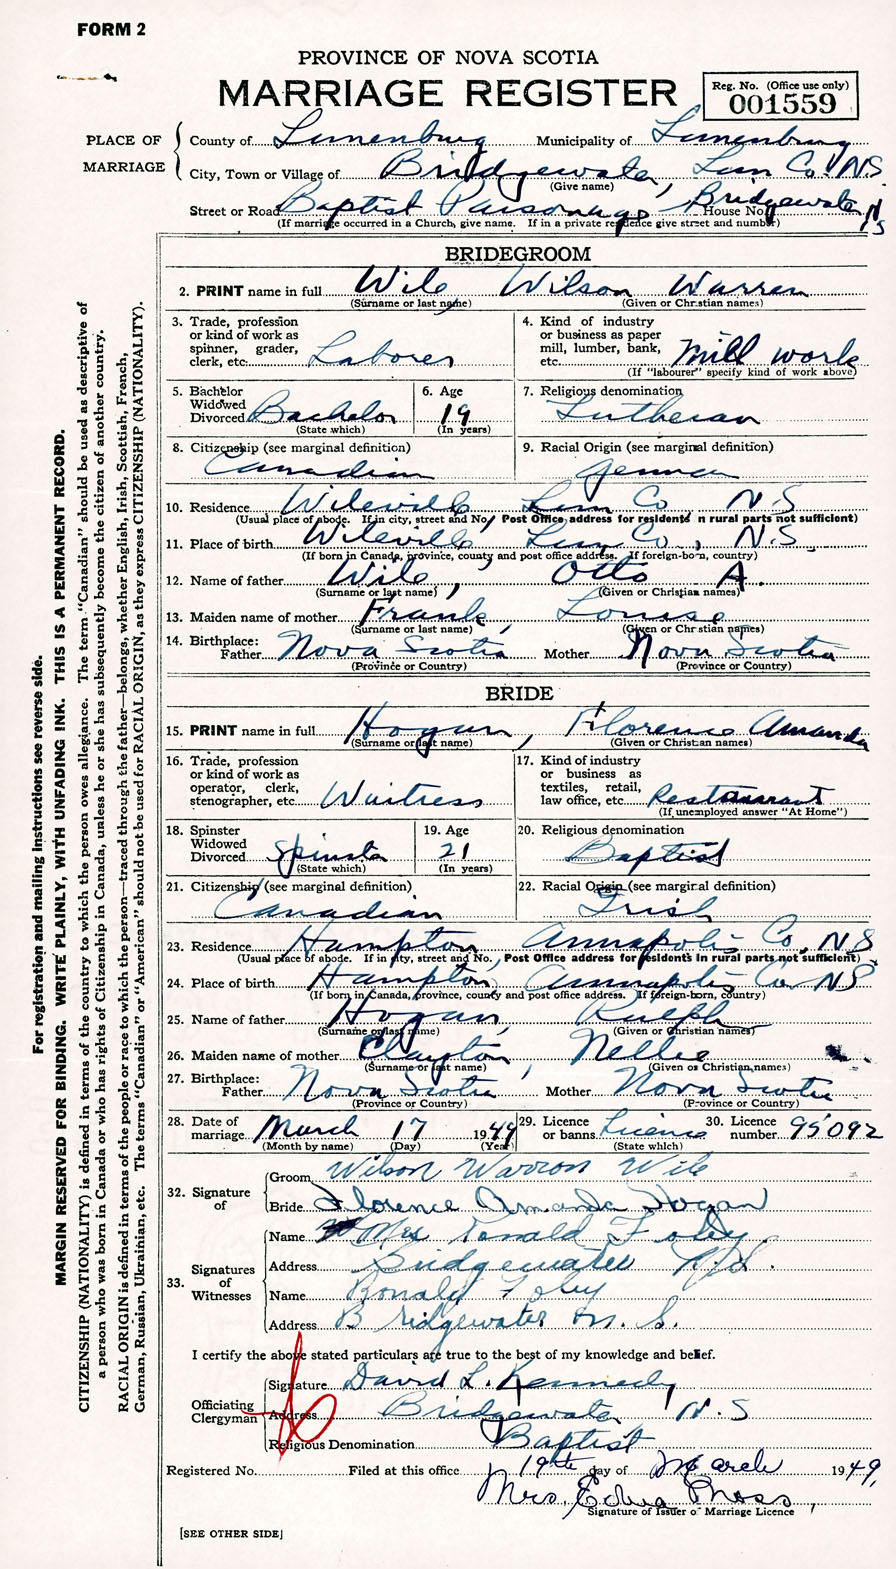 FORM 2
PROVINCE OF NOVA SCOTIA
MARRIAGE REGISTER
Reg. No. (Office use only)
001559
PLACE OF MARRIAGE
County of Lunenburg Municipality of Lunenburg
City, Town or Village of Bridgewater, Lun Co. N.S.
(Give name)
Street or Road Baptist Parsonage Bridgewater N S House No.
(If marriage occurred in a Church, give name. If in a private residence give street and number)
BRIDEGROOM
2. PRINT name in full Wile Wilson Warren
(Surname or last name) (Given or Christian names)
3. Trade, profession or kind of work as spinner, grader, clerk, etc. Laborer
4. Kind of industry or business as paper mill, lumber, bank, etc. Mill work
(If "labourer" specify kind of work above)
5. Bachelor Widowed Divorced Bachelor
(State which)
6. Age 19
(In years)
7. Religious denomination
Lutheran
8. Citizenship (see marginal definition)
Canadian
9. Racial Origin (see marginal definition)
German
10. Residence Wileville Lun Co N.S
(Usual place of abode. If in city, street and No., Post Office address for residents in rural parts not sufficient)
11. Place of birth Wileville Lun Co., N.S.
(If born in Canada, province, county and post office address. If foreign-born, country)
12. Name of father Wile, Otto A.
(Surname or last name) (Given or Christian names)
13. Maiden name of mother Frank, Louise
(Surname or last name) (Given or Christian names)
14. Birthplace:
Father Nova Scotia Mother Nova Scotia
(Province or Country) (Province or Country)
BRIDE
15. PRINT name in full Hogan, Florence Amanda
(Surname or last name) (Given or Christian names)
16. Trade, profession or kind of work as operator, clerk, stenographer, etc. Waitress
17. Kind of industry or business as textiles, retail, law office, etc. Restaurant
(If unemployed answer "At Home")
18. Spinster Widowed Divorced Spinster
(State which)
19. Age 21
(In years)
20. Religious denomination
Baptist
21. Citizenship (see marginal definition)
Canadian
22. Racial Origin (see marginal definition)
Irish
23. Residence Hampton Annapolis Co, N S
(Usual place of abode. If in city, street and No., Post Office address for residents in rural parts not sufficient)
24. Place of birth Hampton, Annapolis Co. N S
(If born in Canada, province, county and post office address. If foreign-born, country)
25. Name of father Hogan, Ralph
(Surname or last name) (Given or Christian names)
26. Maiden name of mother Clayton, Nellie
(Surname or last name) (Given or Christian names)
27. Birthplace:
Father Nova Scotia Mother Nova Scotia
(Province or Country) (Province or Country)
28. Date of marriage March 17 1949
(Month by name) (Day) (Year)
29. Licence or banns License
(State which)
30. Licence number 95092
32. Signature of
Groom Wilson Warren Wile
Bride Florence Amanda Hogan
33. Signatures of Witnesses
Name Mrs Ronald Foley.
Address Bridgewater N.S.
Name Ronald Foley
Address Bridgewater N. S.
I certify the above stated particulars are true to the best of my knowledge and belief.
Officiating Clergyman
Signature David L. Kennedy
Address Bridgewater N.S
Religious Denomination Baptist
Registered No. Filed at this office 19th day of March 1949,
Mrs. Edna
Signature of Issuer of Marriage Licence
[SEE OTHER SIDE]
For registration and mailing instructions see reverse side.
MARGIN RESERVED FOR BINDING. WRITE PLAINLY, WITH UNFADING INK. THIS IS A PERMANENT RECORD.
CITIZENSHIP (NATIONALITY) is defined in terms of the country to which the person owes allegiance. The term "Canadian" should be used as descriptive of
a person who was born in Canada or who has rights of Citizenship in Canada, unless he or she has subsequently become the citizen of another country.
RACIAL ORIGIN is defined in terms of the people or race to which the person—traced through the father—belongs, whether English, Irish, Scottish, French,
German, Russian, Ukrainian, etc. The terms "Canadian" or "American" should not be used for RACIAL ORIGIN, as they express CITIZENSHIP (NATIONALITY).